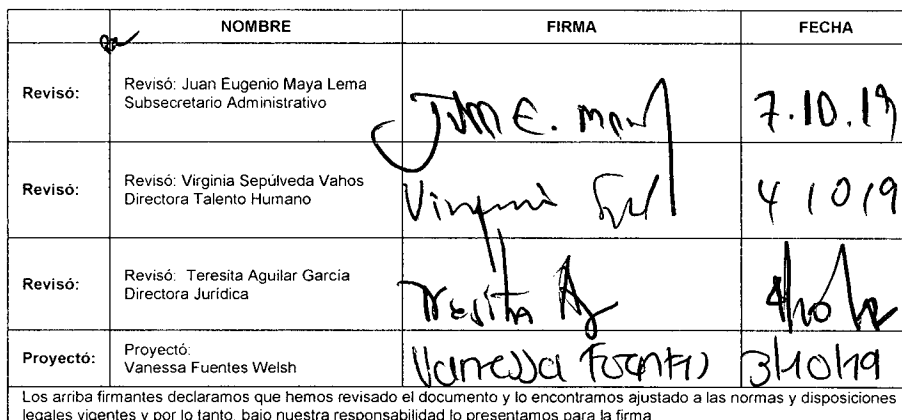 NOMBRE FIRMA FECHA
Revisó: Revisó: Juan Eugenio Maya Lema
Subsecretario Administrativo
Juan E. 7.10.19
Revisó: Revisó: Virginia Sepúlveda Vahos
Directora Talento Humano
Virginia 4 10 19
Revisó: Revisó: Teresita Aguilar García
Directora Jurídica
Teresita
Proyectó: Proyectó:
Vanessa Fuentes Welsh
Vanessa Fuentes 3/10/19
Los arriba firmantes declaramos que hemos revisado el documento y lo encontramos ajustado a las normas y disposiciones
legales vigentes y por lo tanto, bajo nuestra responsabilidad lo presentamos para la firma